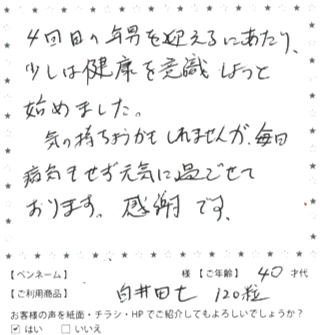 4回目の年男を迎えるにあたり、
少しは健康を意識しようと
始めました。
気の持ちようかもしれませんが、毎日
病気もせず元気に過ごせて
おります。感謝です。
【ペンネーム】 様 【ご年齢】 40 才代
【ご利用商品】 白井田七 120粒
お客様の声を紙面・チラシ・HPでご紹介してもよろしいでしょうか?
☑ はい □ いいえ